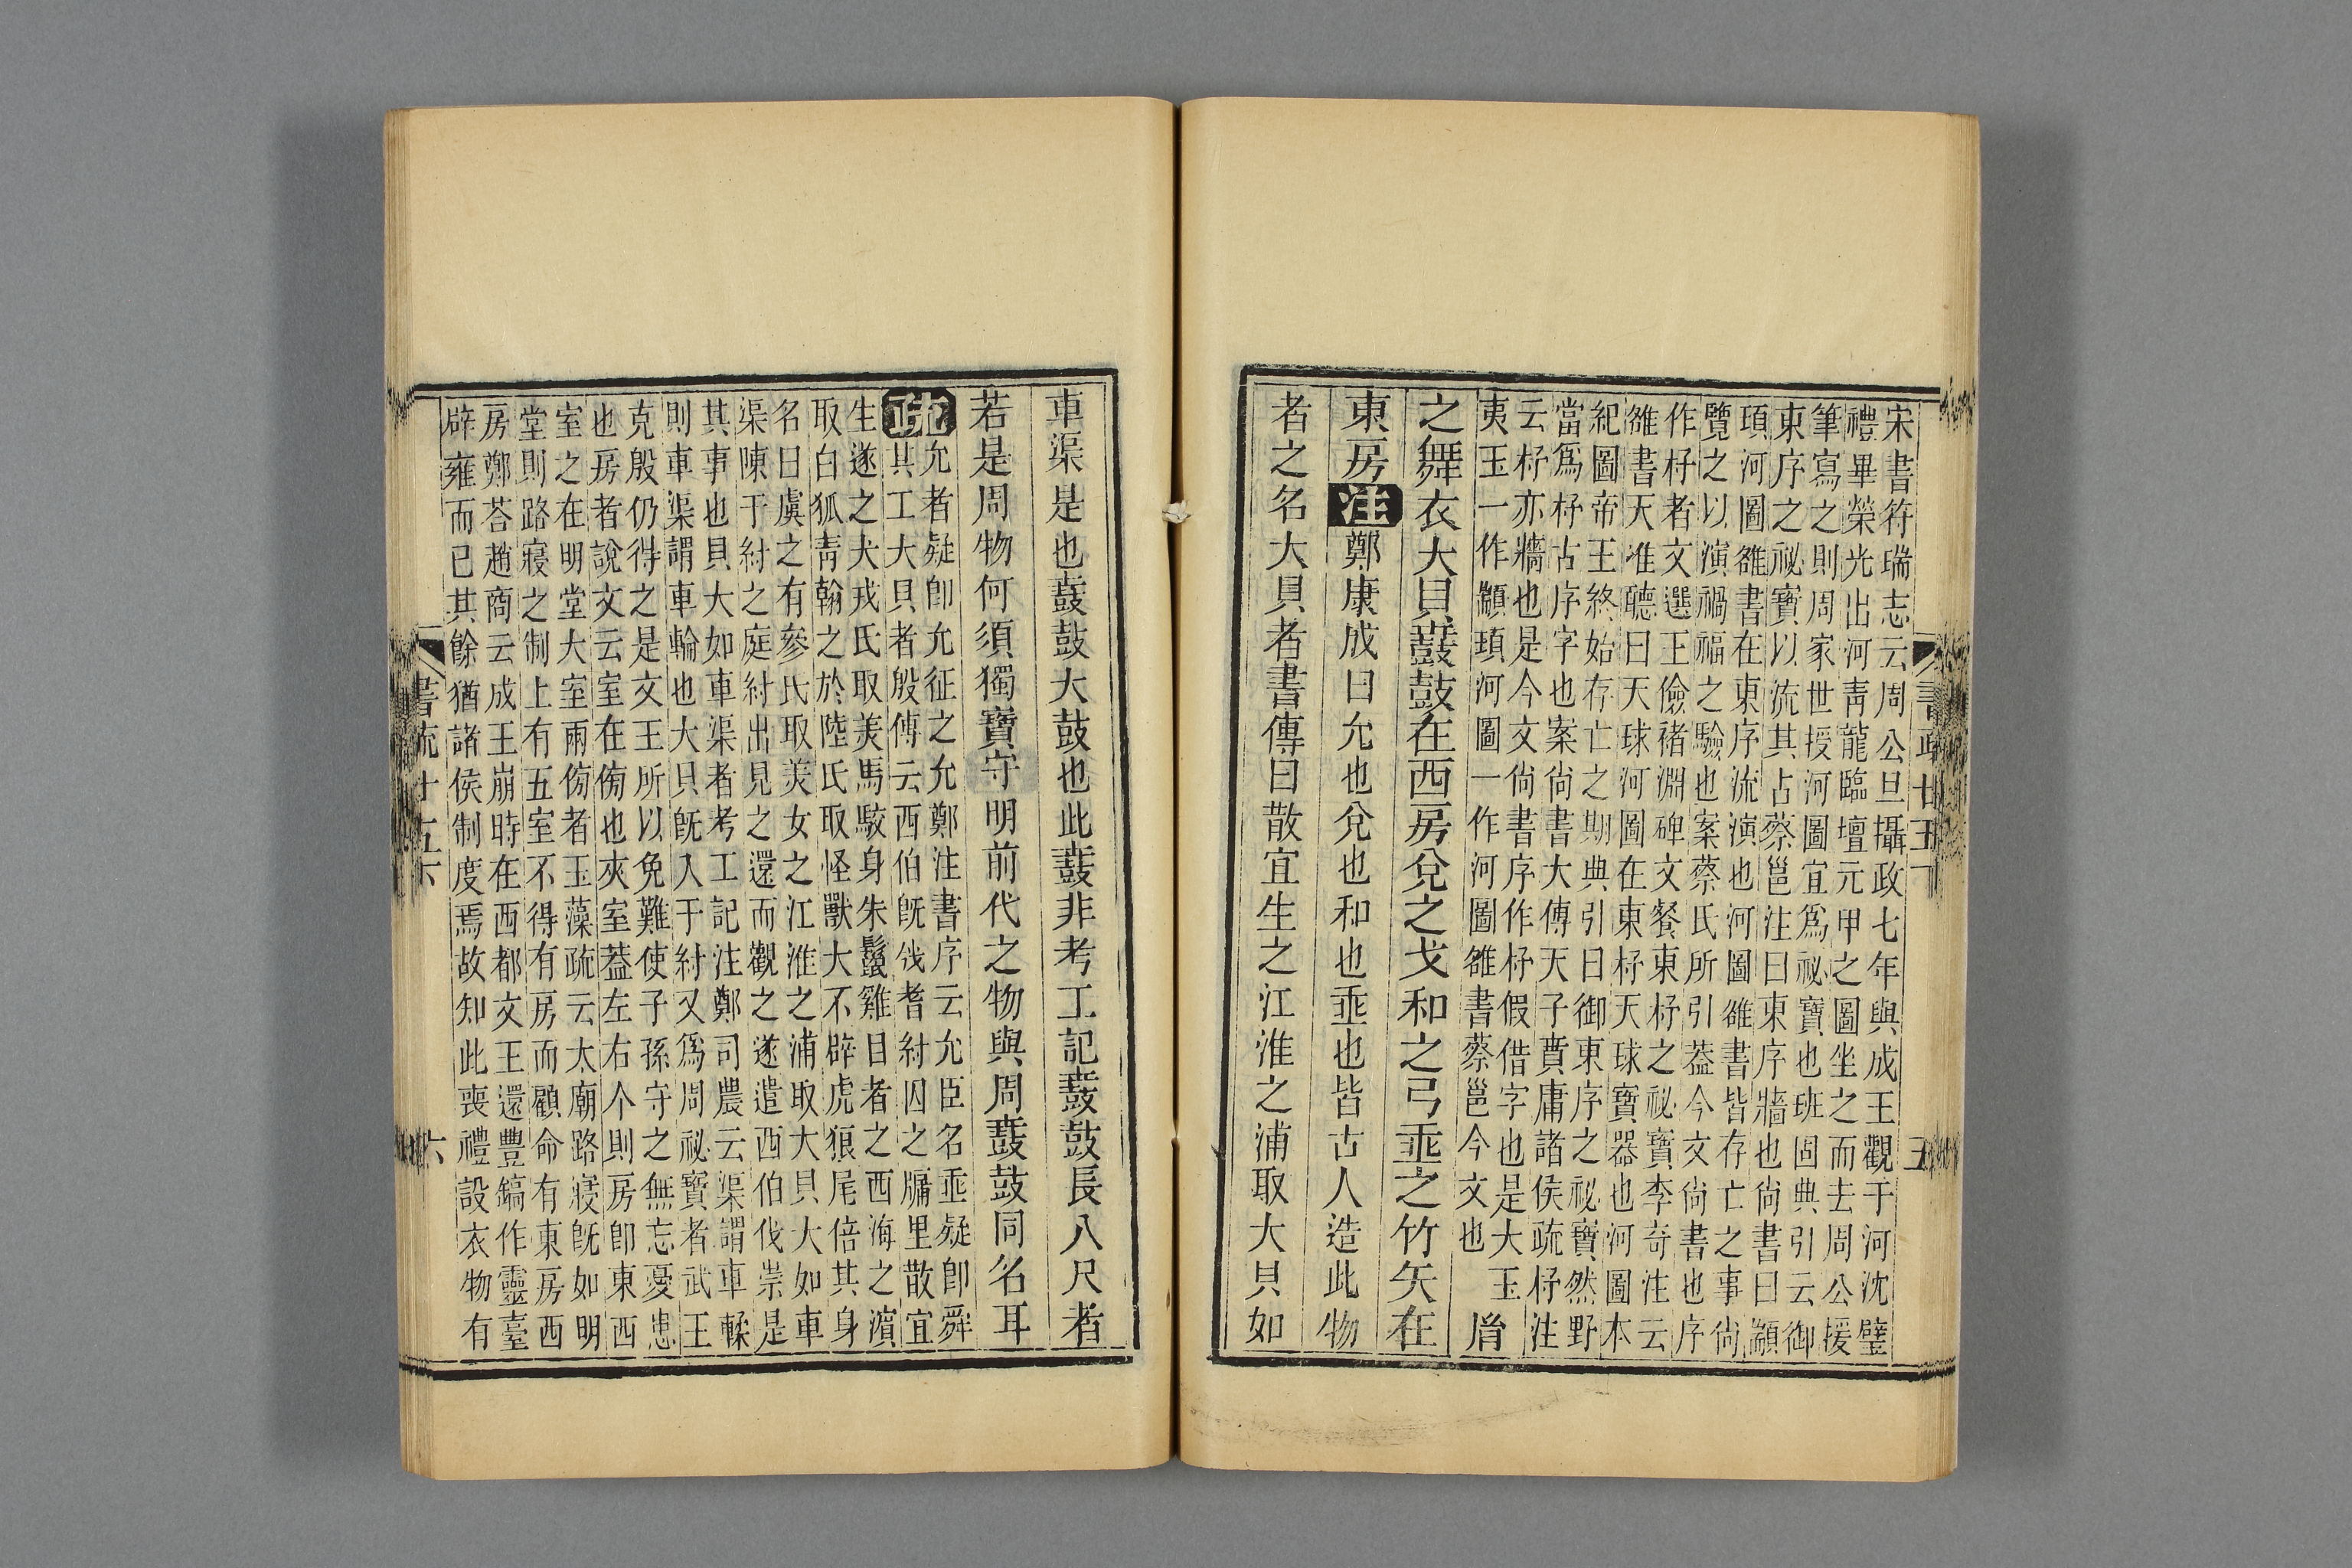 宋書符瑞志云周公旦攝政七年與成王觀于河沈璧
禮畢榮光出河青龍臨壇元甲之圖坐之而去周公援
筆寫之則周家世授河圖宜爲祕寶也班固典引云御
東序之祕寶以流其占蔡邕注曰東序牆也尙書曰顓
頊河圖雒書在東序流演也河圖雒書皆存亡之事尙
覽之以演禍福之驗也案蔡氏所引葢今文尙書也序
作杼者文選王儉褚淵碑文餐東杼之祕寶李奇注云
雒書天准聽曰天球河圖在東杼天球寶器也河圖本
紀圖帝王終始存亡之期典引曰御東序之祕寶然野
當爲杼古序字也案尙書大傳天子賁庸諸侯疏杼注
云杼亦牆也是今文尙書序作杼假借字也是大玉
夷玉一作顓頊河圖一作河圖雒書蔡邕今文也
胤
之舞衣大貝鼖鼓在西房兌之戈和之弓垂之竹矢在
東房注鄭康成曰允也兌也和也垂也皆古人造此物
者之名大貝者書傳曰散宜生之江淮之浦取大貝如
書疏廿五下
五
車渠是也鼖鼓大鼓也此鼖非考工記鼖鼓長八尺者
若是周物何須獨寶守明前代之物與周鼖鼓同名耳
疏允者疑卽允征之允鄭注書序云允臣名垂疑卽舜
共工大貝者殷傳云西伯旣戡耆紂囚之牖里散宜
生遂之犬戎氏取美馬駮身朱鬣雞目者之西海之濱
取白狐青翰之於陸氏取怪獸大不辟虎狼尾倍其身
名曰虞之有參氏取美女之江淮之浦取大貝大如車
渠陳于紂之庭紂出見之還而觀之遂遣西伯伐崇是
其事也貝大如車渠者考工記注鄭司農云渠謂車輮
則車渠謂車輪也大貝旣入于紂又爲周祕寶者武王
克殷仍得之是文王所以免難使子孫守之無忘憂患
也房者說文云室在㫄也夾室葢左右个則房卽東西
室之在明堂大室兩㫄者玉藻疏云太廟路寢旣如明
堂則路寢之制上有五室不得有房而顧命有東房西
房鄭荅趙商云成王崩時在西都文王還豐鎬作靈臺
辟雍而已其餘猶諸侯制度焉故知此喪禮設衣物有
六